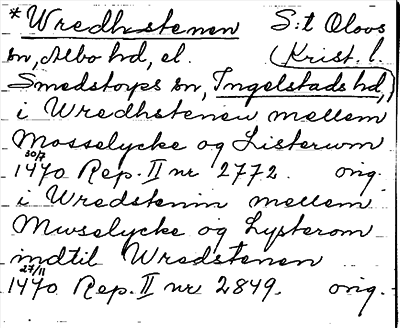 *Wredhstenen S:t Olovs
sn, Albo hd, el. (Krist. l.
Smedstorps sn, Ingelstads hd,)
i Wredhstenen mellem
Mosselycke og Listerwm
30/7 1470 Rep. II nr 2772. orig.
i Wredstenin mellem
Mwselycke og Lysterom
indtil Wredstenen
27/11 1470 Rep. II nr 2849. orig.